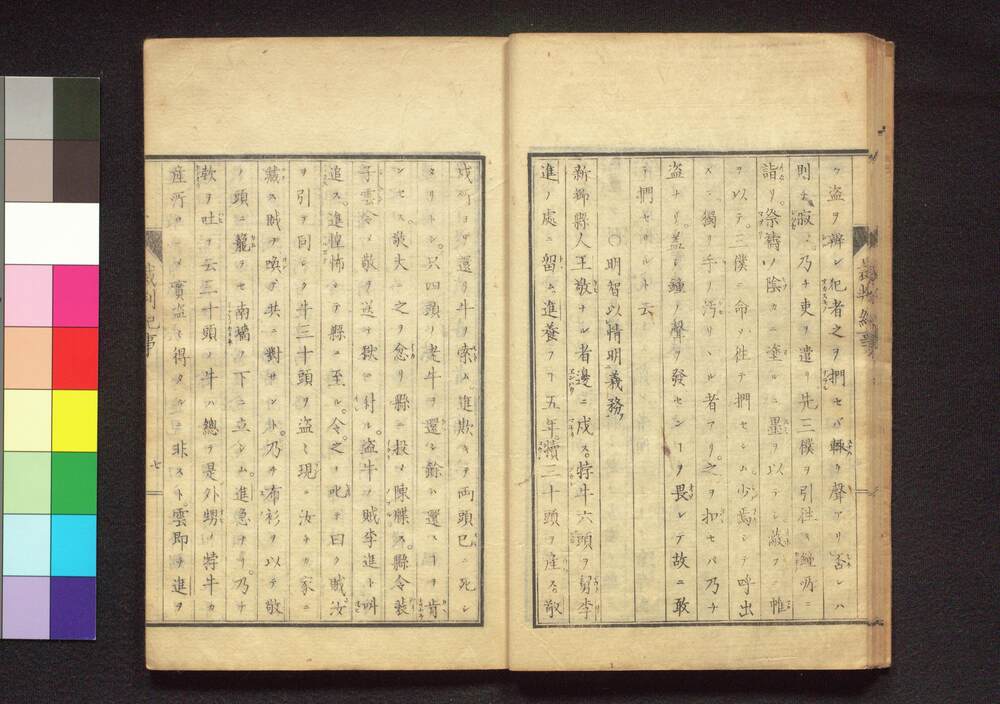 ク盗ヲ辨シ犯者之ヲ捫セバ輙チ聲アリ否レハ
則チ寂ニ乃チ吏ヲ遣リ先三僕ヲ引往ス鐘所ニ
詣リ祭禱ソ陰カニ塗ルニ墨ヲ以テシ蔽フ帷
ヲ以テ三僕ニ命ソ往テ捫セシム少焉シテ呼出
スニ獨リ手ノ汚リヽル者アリ之ヲ扣セバ乃チ
盗ナリ蓋シ鐘ノ聲ヲ發センヿヲ畏レテ故ニ敢
テ捫セサルト云
○明智以情明義務
新郷縣人王敬ナル者邊ニ戍ス牸牛六頭ヲ舅李
進ノ處ニ留ム進養フヿ五年犢三十頭ヲ産ス敬
戍所ヨリ還リ牛ヲ索ム進欺キテ両頭已ニ死シ
タリトシ只四頭ノ老牛ヲ還シ餘ハ還スヿヲ肯
ンセス敬大ニ之ヲ忿リ縣ニ投メ陳牒ス縣令裴
子雲令メ敬ヲ送テ獄ニ付シ盗牛ヲ賊李進ト叫
追ス進惶怖シテ縣ニ至ル令之ヲ叱テ曰ク賊汝
ヲ引ヲ同シク牛三十頭ヲ盗ミ現ニ汝チカ家ニ
藏ス賊ヲ喚ンデ共ニ對サント乃チ布衫ヲ以テ敬
ノ頭ニ籠ヲセ南墻ノ下ニ立シム進急ヲ乃チ
軟ヲ吐ヲ云三十頭ノ牛ハ總テ是外甥ノ牸牛カ
産所ロニメ實盗ミ得タルニ非スト雲即チ進ヲ
裁判紀事
七